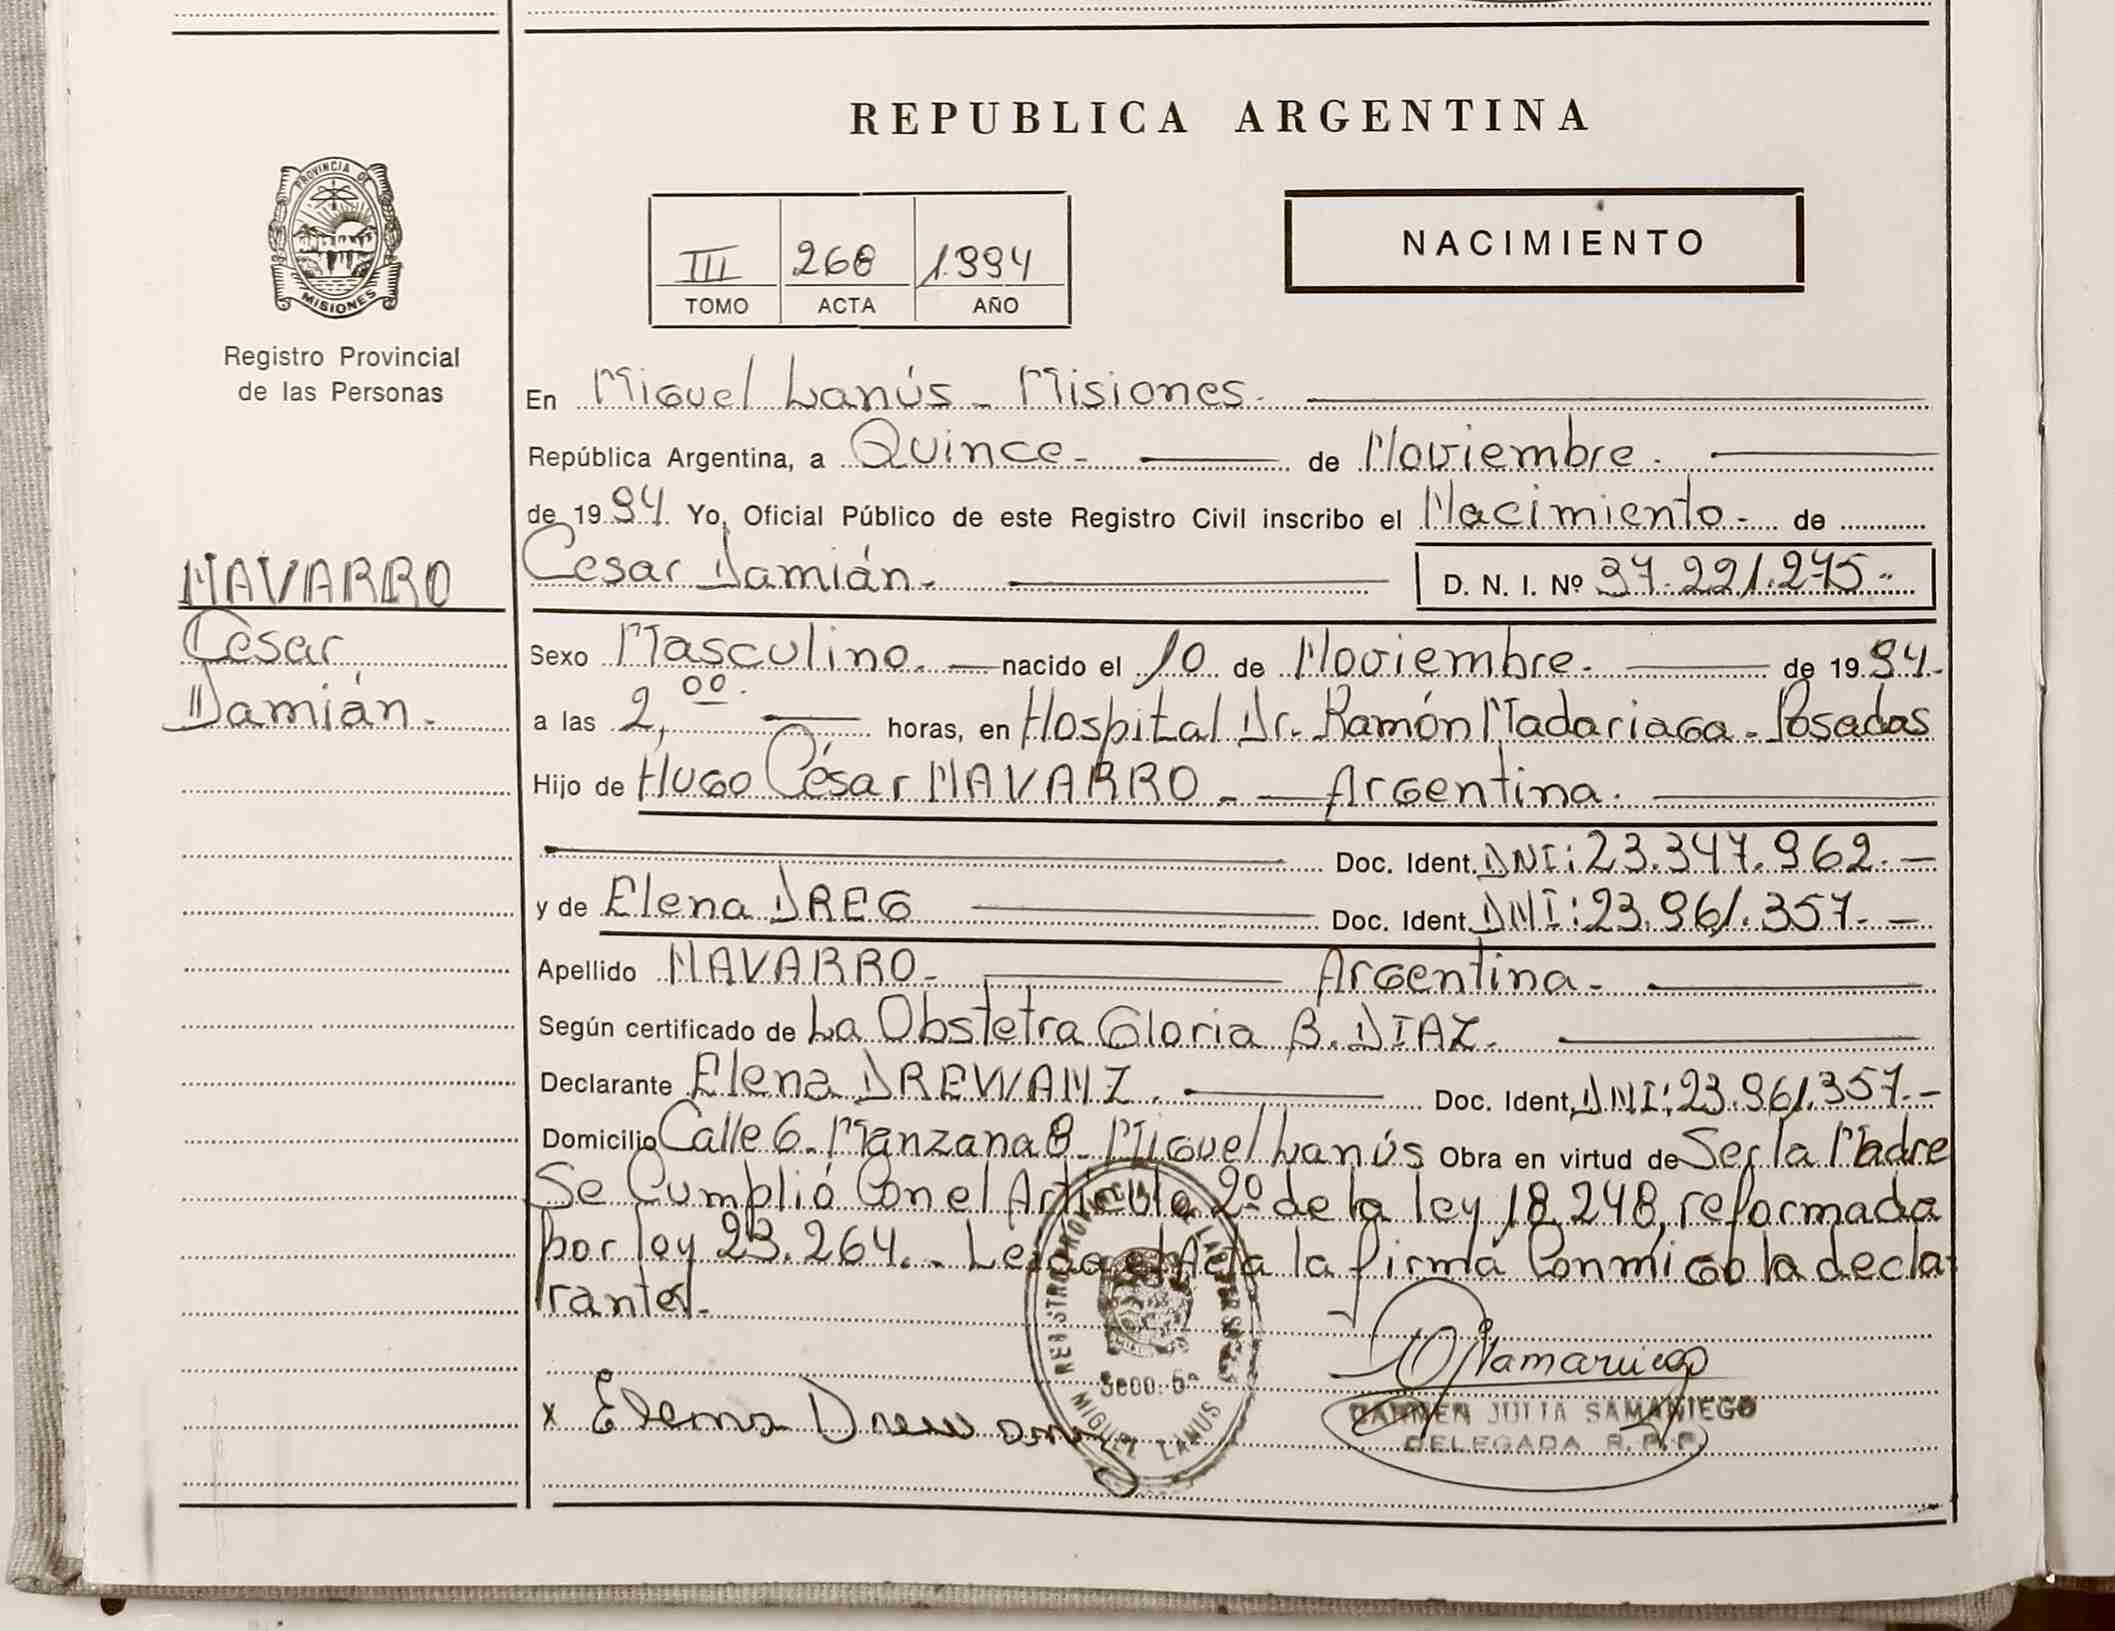 REPUBLICA ARGENTINA
PROVINCIA DE
MISIONES
Registro Provincial
de las Personas
III 268 1994
TOMO ACTA AÑO
NACIMIENTO
En Miguel Lanús - Misiones.
República Argentina, a Quince - de Noviembre.
de 1994. Yo, Oficial Público de este Registro Civil inscribo el Nacimiento - de
NAVARRO
César
Damián.-
Cesar Damián.-
D. N. I. Nº 37.221.275.-
Sexo Masculino. nacido el 10 de Noviembre. de 1994.
a las 2,00. horas, en Hospital Dr. Ramón Madariaga - Posadas
Hijo de Hugo César NAVARRO - Argentina.
Doc. Ident. DNI: 23.347.962.-
y de Elena DREG Doc. Ident. DNI: 23.961.357.-
Apellido NAVARRO - Argentina -
Según certificado de La Obstetra Gloria B. DIAZ.
Declarante Elena DREWANZ. Doc. Ident. DNI: 23.961.357.-
Domicilio Calle 6 - Manzana 8 - Miguel Lanús Obra en virtud de Ser la Madre
Se Cumplió Con el Artículo 2º de la ley 18.248, reformada
por ley 23.264.- Leida el Acta la firma Conmigo la decla
rante.-
REGISTRO PROVINCIAL DE LAS PERSONAS
Secc. 6ª
MIGUEL LANUS
x Elena Drewanz
Samaniego
CARMEN JULIA SAMANIEGO
DELEGADA R.P.P.